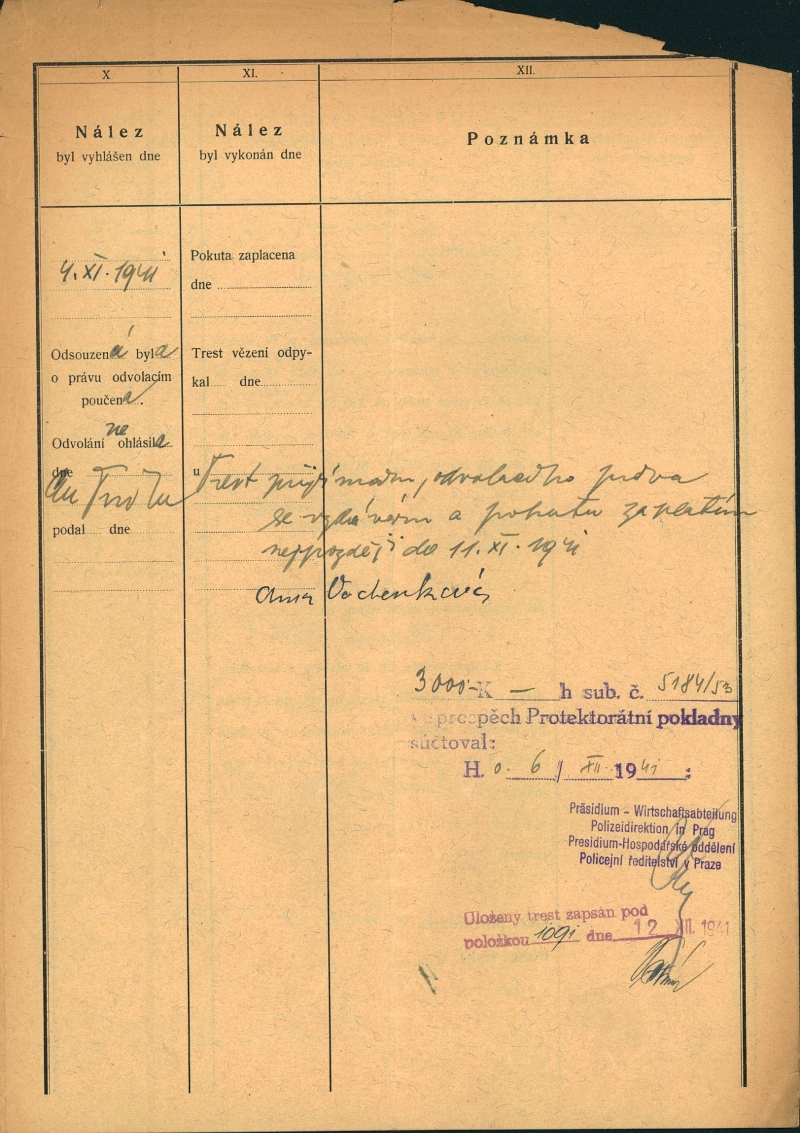 X
Nález
byl vyhlášen dne
4. XI. 1941
Odsouzená byla
o právu odvolacím
poučena.
Odvolání neohlásila
dne
podal dne
XI.
Nález
byl vykonán dne
Pokuta zaplacena
dne
Trest vězení odpy-
kal dne
u
XII.
Poznámka
Trest přijímám, odvolacího práva
se vzdávám a pokutu zaplatím
nejpozději do 11. XI. 1941
Anna
3000 K — h sub. č. 5184/53
ve prospěch Protektorátní pokladny
súčtoval:
H. o. 6 / XII. 1941 :
Präsidium - Wirtschaftsabteilung
Polizeidirektion in Prag
Presidium-Hospodářské oddělení
Policejní ředitelství v Praze
Uložený trest zapsán pod
položkou 1091 dne 12 XII. 1941